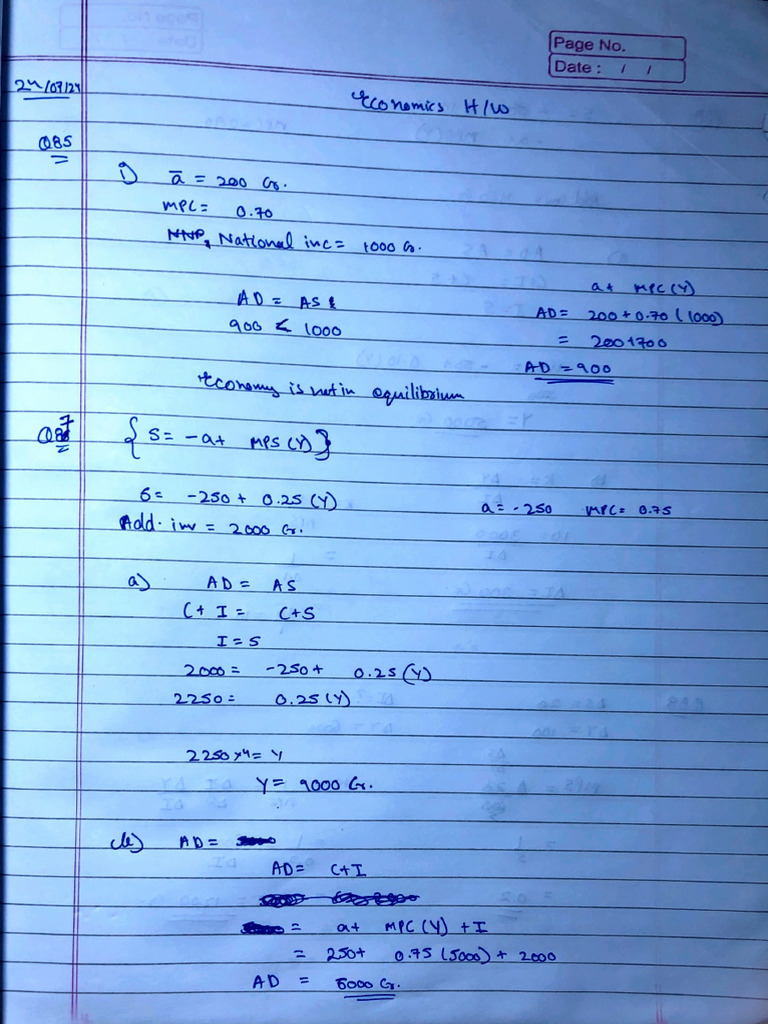 Page No.
Date : / /
24/07/24
Economics H/W
Q85
i) ā = 200 Cr.
MPC = 0.70
National inc = 1000 Cr.
AD = AS
900 < 1000
a + MPC (Y)
AD = 200 + 0.70 (1000)
= 200+700
AD = 900
Economy is not in equilibrium
Q87
{ S = -a + MPS (Y) }
S = -250 + 0.25 (Y)
a = -250 MPC = 0.75
Add. inv = 2000 Cr.
a) AD = AS
C + I = C+S
I = S
2000 = -250 + 0.25 (Y)
2250 = 0.25 (Y)
2250 x 4 = Y
Y = 9000 Cr.
b) AD =
AD = C+I
= a + MPC (Y) + I
= 250 + 0.75 (5000) + 2000
AD = 6000 Cr.